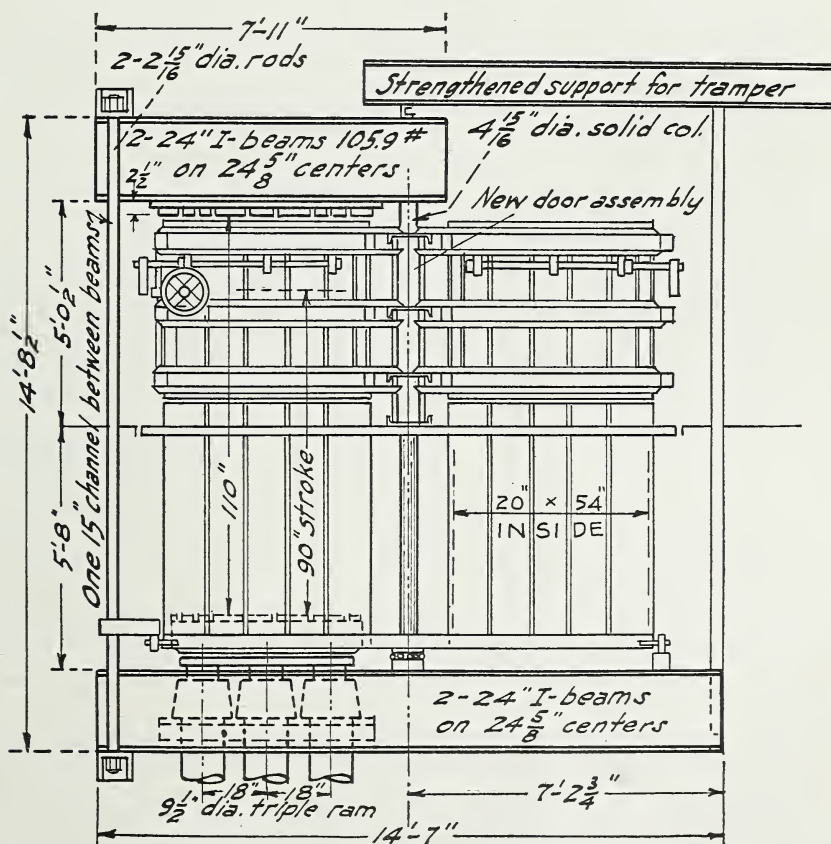 7'-11"
2-2 15/16" dia. rods
Strengthened support for tramper
2-24" I-beams 105.9#
on 24 5/8" centers
4 15/16" dia. solid col.
2 1/2"
New door assembly
14'-8 1/2"
5'-0 1/2"
5'-8"
One 15" channel between beams
110"
90" stroke
20" x 54"
INSIDE
2-24" I-beams
on 24 5/8" centers
18"
18"
9 1/2" dia. triple ram
7'-2 3/4"
14'-7"